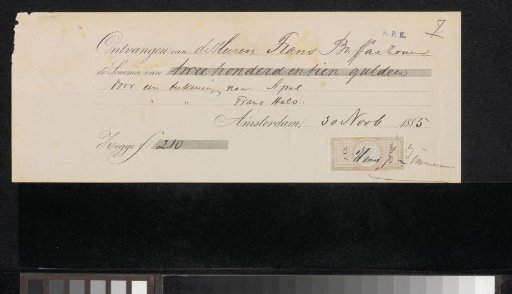 R.P.K. 7
Ontvangen van de Heeren Frans Buffa & Zonen
de Somma van twee honderd en tien gulden
Voor een teekening naar Apol
" " Frans Hals.
Amsterdam, 30 Novb 1885
Zegge f 210